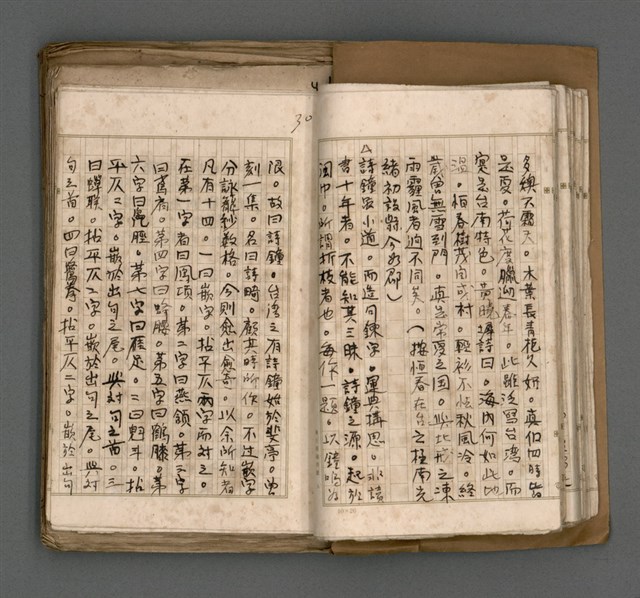 多燠不霜天。木葉長青花久妍。真個四時皆
是夏。荷花度臘迎春年。此雖泛詠台灣。而
寔是台南特色。黃曉墀詩曰。海內何如此地
溫。恒春樹茂自成村。輕衫不怯秋風冷。終
歲曾無雪到門。真是常夏之國。與北地之凍
雨霾風者迥不同矣。(按恒春在台之極南光
緒初設縣今為郡)
△詩鐘雖小道。而造句鍊字。運典構思。非讀
書十年者。不能知其三昧。詩鐘之源。起於
閩中。所謂折枝者也。每作一題。以鐘鳴為
30
限。故曰詩鐘。台灣之有詩鐘始於斐亭。曾
刻一集。名曰詩畸。顧其時所作。不過嵌字
分詠籠紗數格。今則愈出愈奇。以余所知者
凡有十四。一曰嵌字。拈平仄兩字而對之。
在第一字者曰鳳頂。第二字曰燕頷。第三字
曰鳶肩。第四字曰蜂腰。第五字曰鶴膝。第
六字曰鳧脛。第七字曰雁足。二曰魁斗。拈
平仄二字。嵌於出句之尾。與對句之首。三
曰蟬聯。拈平仄二字。嵌於出句之尾。與對
句之首。四曰鷺拳。拈平仄二字。嵌於出句